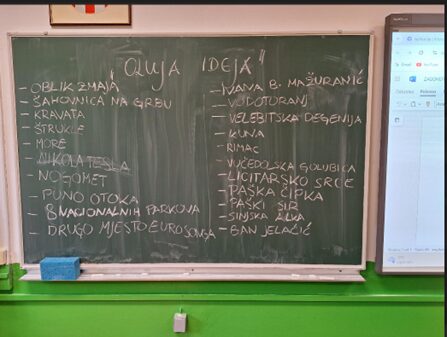 OLUJA IDEJA
- OBLIK ZMAJA
- ŠAHOVNICA NA GRBU
- KRAVATA
- ŠTRUKLE
- MORE
- NIKOLA TESLA
- NOGOMET
- PUNO OTOKA
- 8 NACIONALNIH PARKOVA
- DRUGO MJESTO EUROSONGA
- IVANA B. MAŽURANIĆ
- VODOTORANJ
- VELEBITSKA DEGENIJA
- KUNA
- RIMAC
- VUČEDOLSKA GOLUBICA
- LICITARSKO SRCE
- PAŠKA ČIPKA
- PAŠKI SIR
- SINJSKA ALKA
- BAN JELAČIĆ